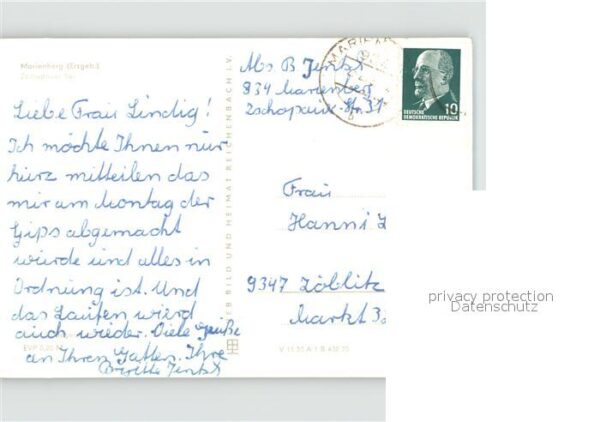 Marienberg (Erzgeb.)
Zschopauer Tor
Liebe Frau Lindig!
Ich möchte Ihnen nur
kurz mitteilen das
mir am Montag der
Gips abgemacht
wurde und alles in
Ordnung ist. Und
das Laufen wierd
auch wieder. Viele Grüße
an Ihren Gatten. Ihre
Birgitte Jentzst
EVP 0,20 M
VEB BILD UND HEIMAT REICHENBACH I. V.
Abs. B Jentzst
934 Marienberg
Zschopauer-Str. 37
MARIEN
DEUTSCHE
DEMOKRATISCHE REPUBLIK
10
Frau
Hanni L
9347 Zöblitz
Markt 3
V 11 50 A 1 B 432/70
privacy protection
Datenschutz